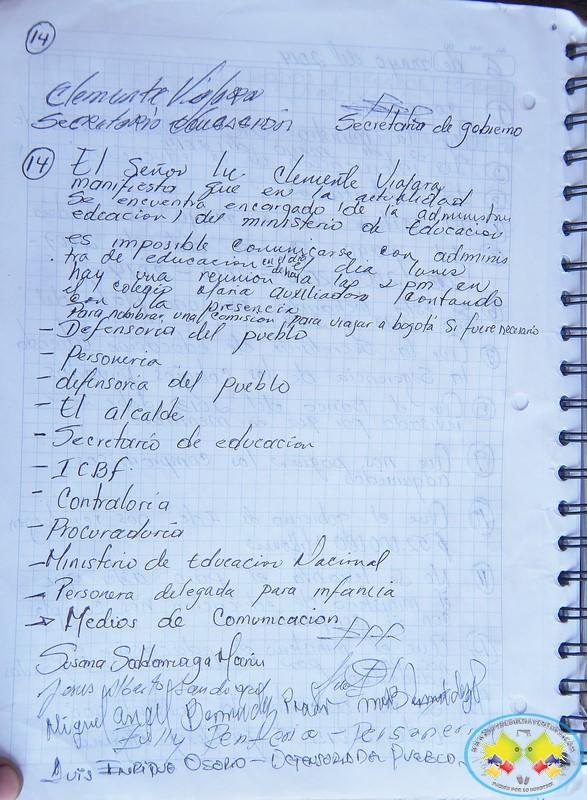 14
Clemente Viafara
Secretario educación
Secretaria de gobierno
14 El Señor Lic Clemente Viafara
manifiesta que en la actualidad
Se encuentra encargado de la administra
edcacion del ministerio de Educacion
es imposible comunicarse con adminis
tra de educacion en el dia lunes
de hoy
hay una reunion a las 2 pm en
el colegio Maria auxiliadora contando
con la presencia
para nombrar una comision para viajar a bogotá Si fuere necesario
- Defensoria del pueblo
- Personeria
- defensoria del pueblo
- El alcalde
- Secretario de educacion
- ICBF.
- Contraloria
- Procuraduria
- Ministerio de Educacion Nacional
- Personera delegada para infancia
→ Medios de Comunicacion
Susana Saldarriaga Marin
Jesus Alberto Sandoval
Miguel angel Bermudez
Penteado - Personera
Luis Enrique Osorio - Defensoria del Pueblo